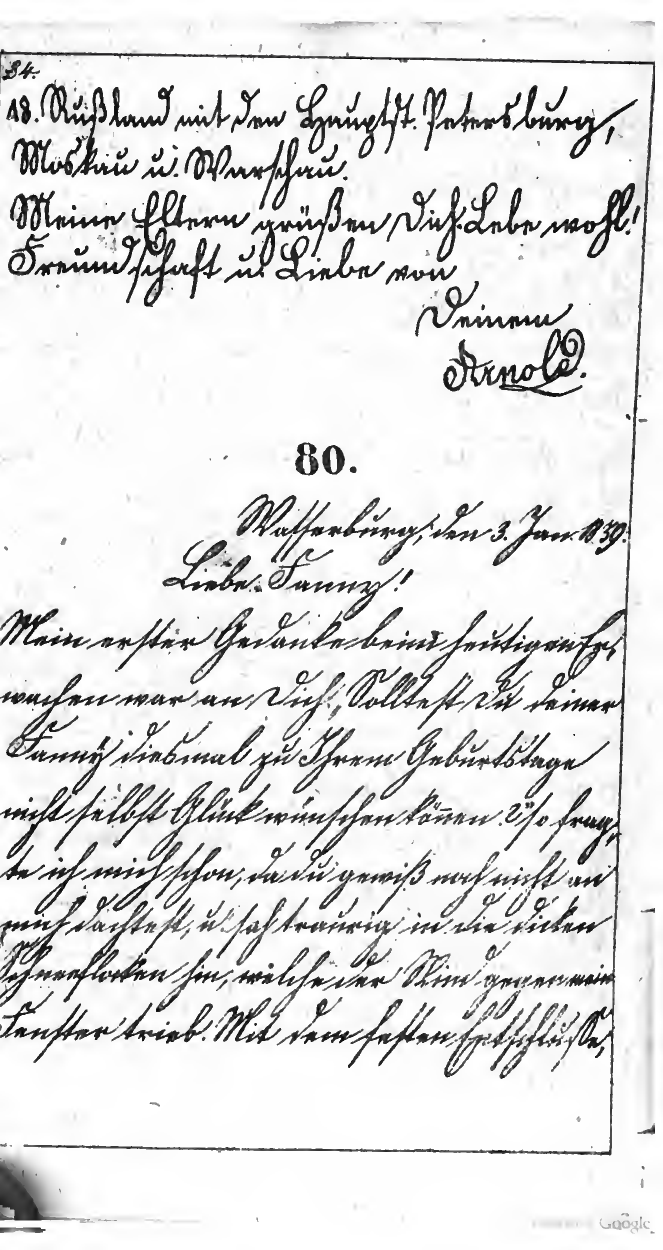 84.
18. Rußland mit den Hauptst. Petersburg,
Moskau u. Warschau.
Meine Eltern grüßen Dich. Lebe wohl!
Freundschaft u. Liebe von
Deinem
Arnold.
80.
Wasserburg, den 3. Jan. 1839.
Liebe Fanny!
Mein erster Gedanke beim heutigen Er-
wachen war an Dich. „Solltest Du deiner
Fanny diesmal zu Ihrem Geburtstage
nicht selbst Glück wünschen können?" so frag-
te ich mich schon, da du gewiß noch nicht an
mich dachtest, u. sah traurig in die dicken
Schneeflocken hin, welche der Wind gegen mein
Fenster trieb. Mit dem festen Entschlusse,
Google